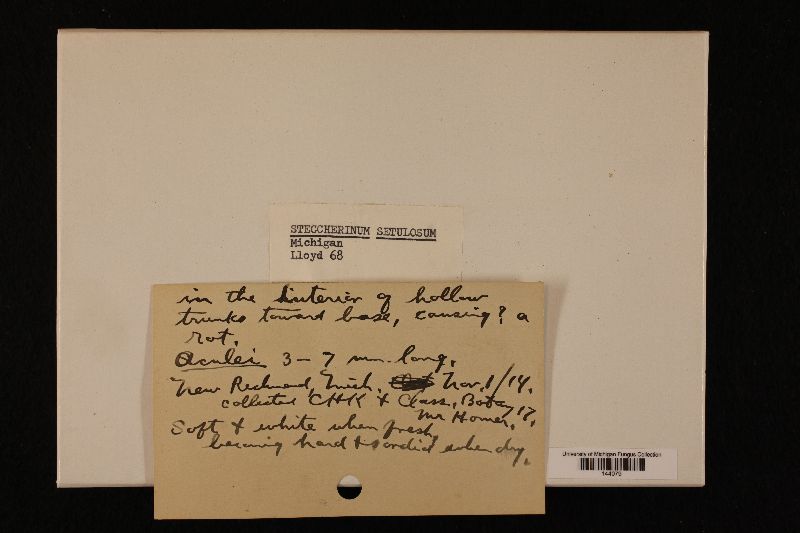 STECCHERINUM SETULOSUM
Michigan
Lloyd 68
in the interior of hollow
trunks toward base, causing? a
rot.
Aculei 3-7 mm. long.
New Richmond, Mich. Nov. 1/14.
collected CHK & Class, Botany 17.
Mr Homer.
Soft & white when fresh,
becoming hard & sordid when dry.
University of Michigan Fungus Collection